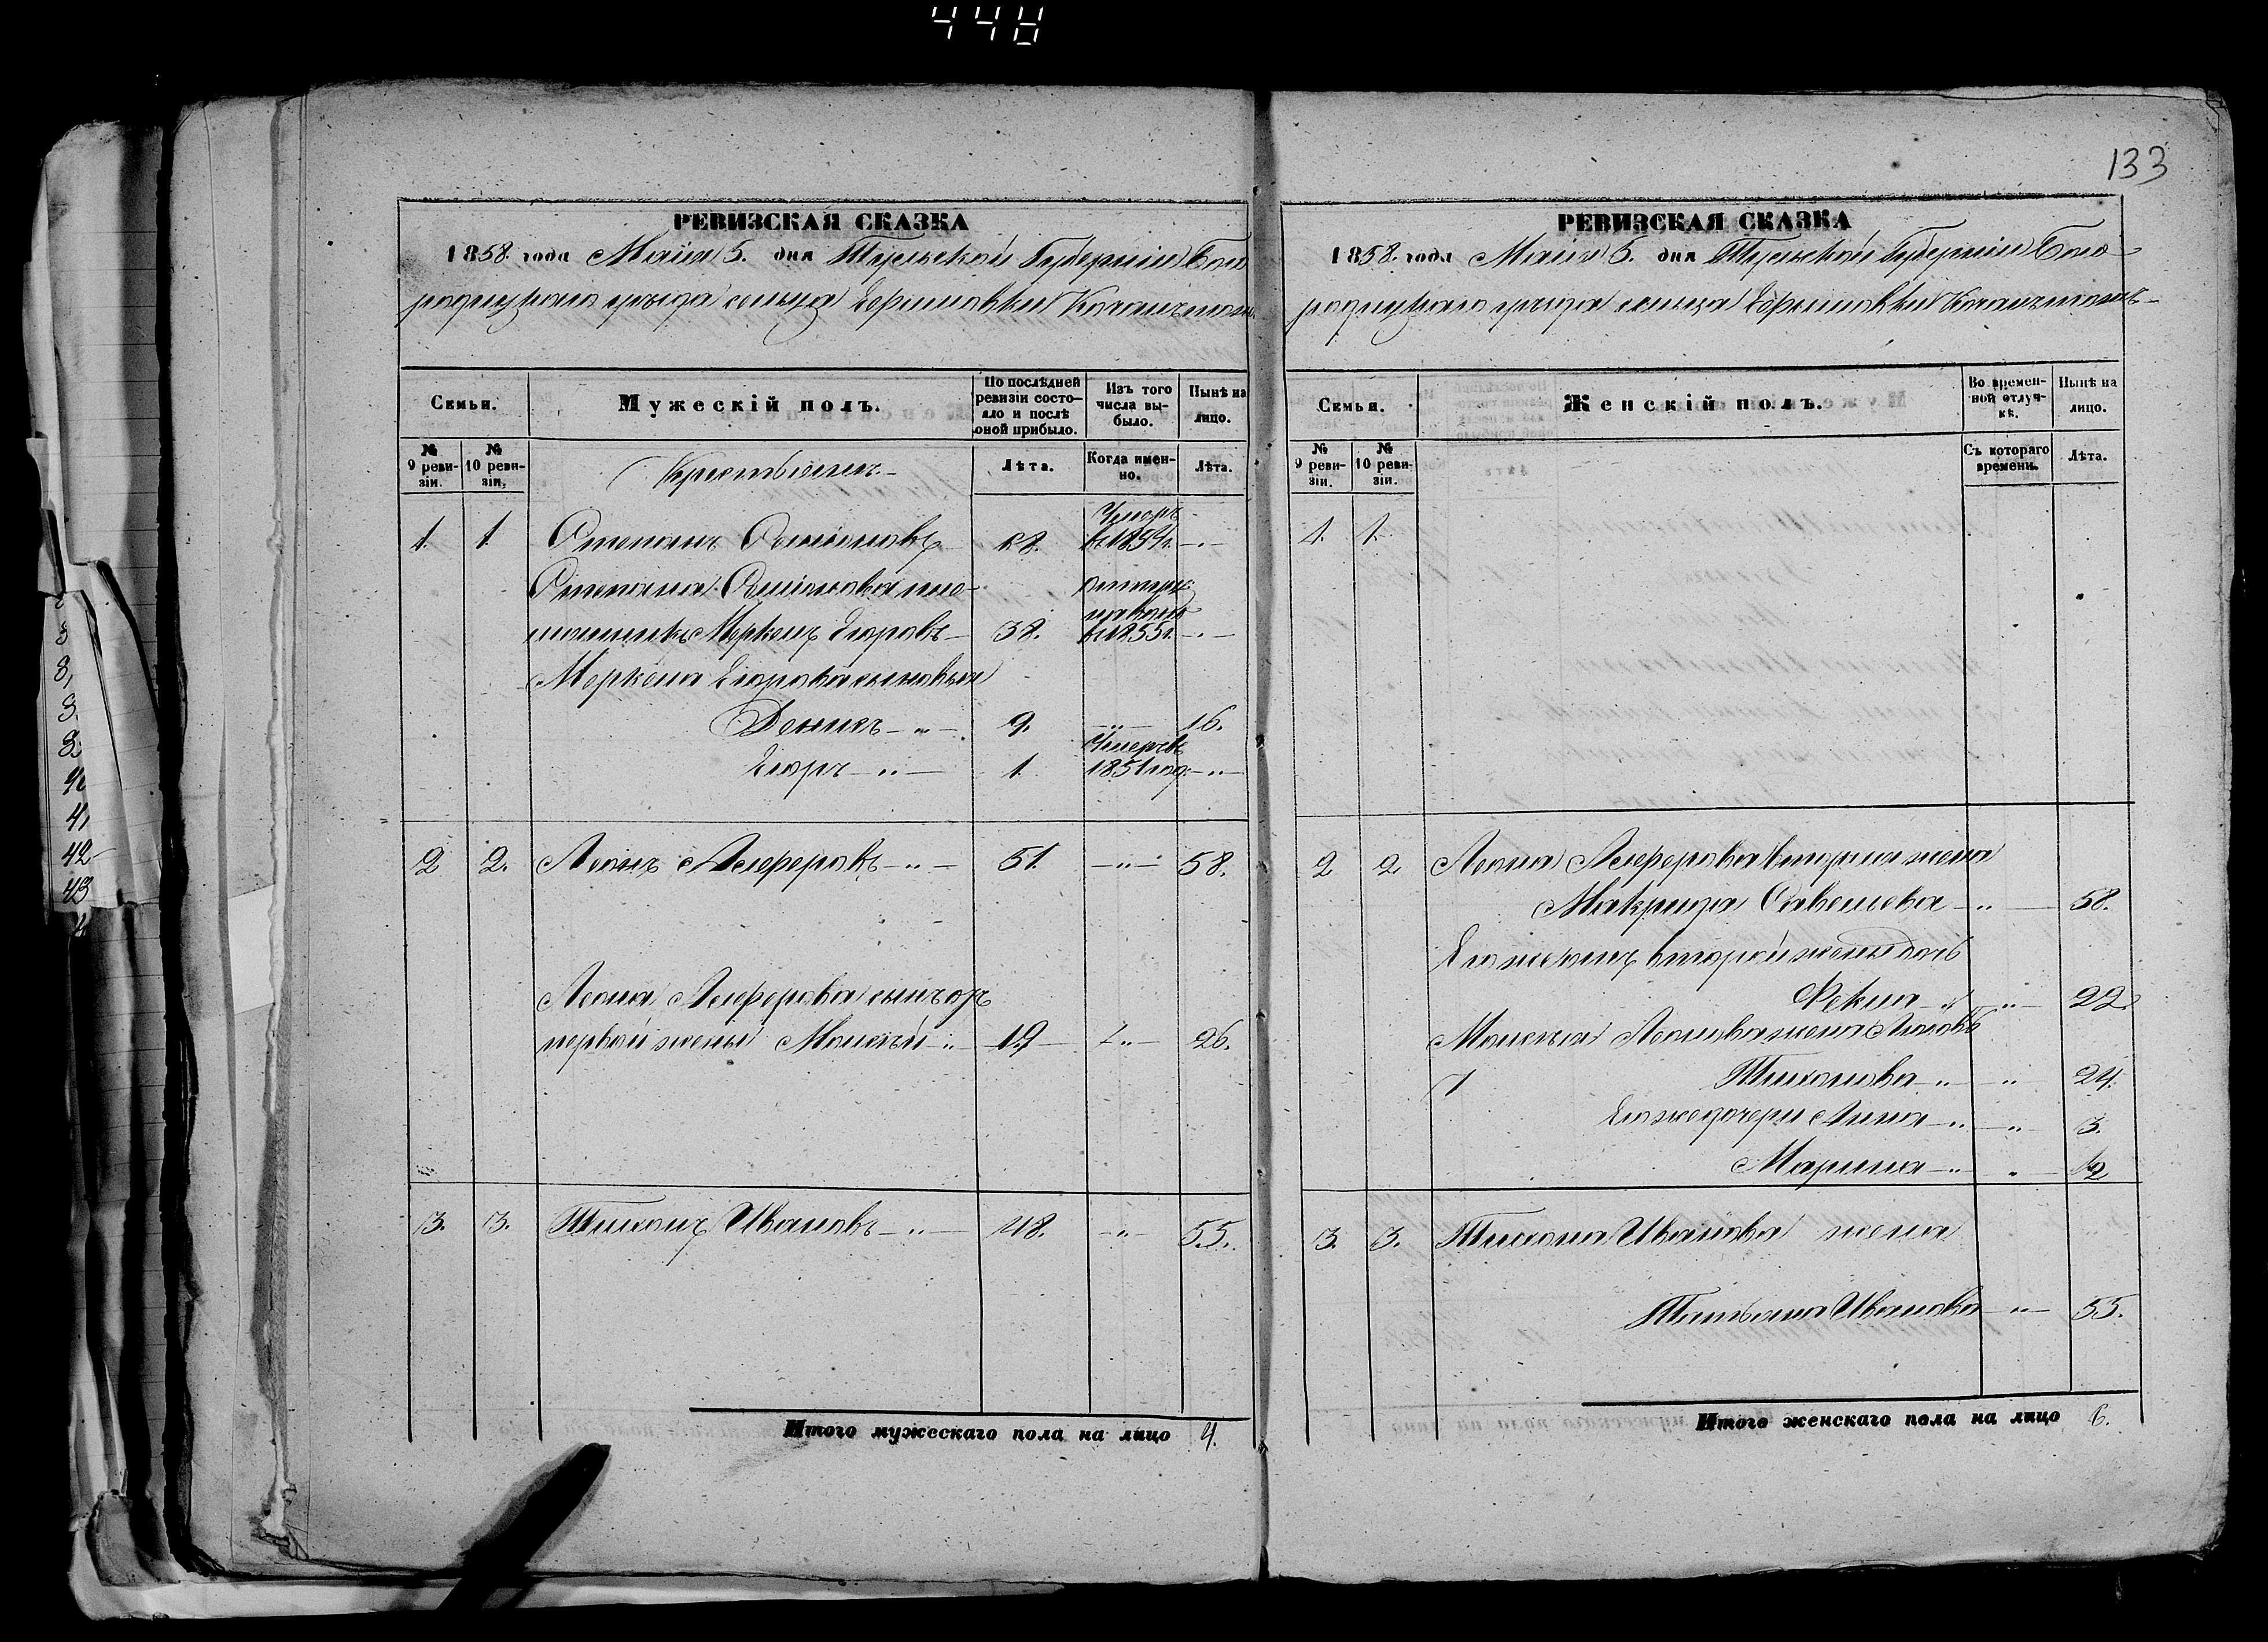 448
133
РЕВИЗСКАЯ СКАЗКА
1858. года Маія 5. дня Тульской Губерніи Бого
родицкаго уѣзда сельца Ефимовки
Семьи.
Мужескій полъ.
По послѣдней ревизіи состояло и послѣ оной прибыло.
Изъ того числа выбыло.
Нынѣ на лицо.
№ 9 ревизіи.
№ 10 ревизіи.
Крестьяне
Лѣта.
Когда именно.
Лѣта.
1. 1. Степанъ 28. Умеръ въ 1854г. -"-
Степана
Егоровъ 38. въ 1855г. -"-
Егорова сыновья
Денисъ -"- 9. -"- 16.
Егоръ -"- 1. Умеръ въ 1851 год. -"-
2 2. Леонъ Алферовъ -"- 51. -"- 58.
Леона Алферова сынъ отъ
первой жены Моисѣй -"- 19 -"- 26.
3. 3. Тихонъ Ивановъ -"- 48. -"- 55.
Итого мужескаго пола на лицо 4.
РЕВИЗСКАЯ СКАЗКА
1858. года Маія 5. дня Тульской Губерніи Бого-
родицкаго уѣзда сельца Ефимовки
Семьи.
Женскій полъ.
Во временной отлучкѣ.
Нынѣ на лицо.
№ 9 ревизіи.
№ 10 ревизіи.
Съ котораго времени.
Лѣта.
1. 1.
2 2 Леона Алферова вторая жена
Макрида Савельева -"- 58.
Его же Леона второй жены дочь
Фекла -"- 22.
Моисѣя Леонова жена Любовь
Тихонова -"- 24.
Его же дочери Анна -"- 3.
Марина -"- 2
3. 3. Тихона Иванова жена
Татьяна Иванова -"- 55.
Итого женскаго пола на лицо 6.
40
41
42
43